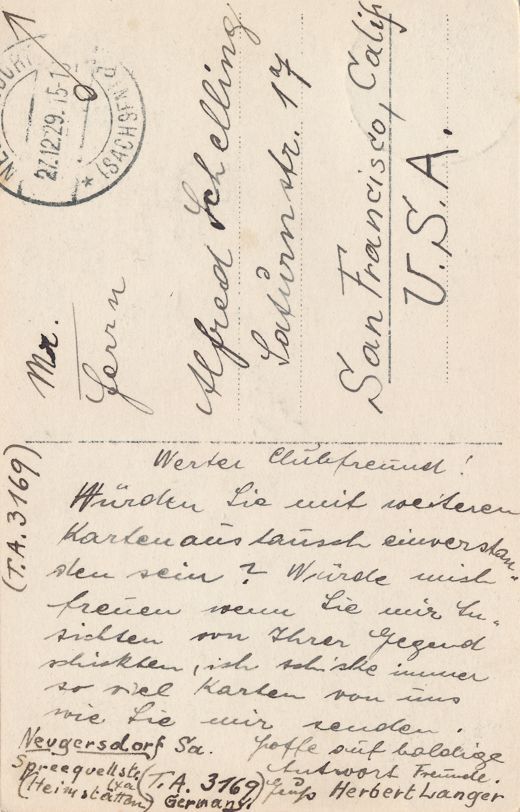 27.12.29.15-1
(SACHSEN)
Mr.
Herrn
Alfred Schelling
Saturnstr. 17
San Francisco, Calif
U.S.A.
(T.A. 3169)
Werter Clubfreund!
Würden Sie mit weiteren
Kartenaustausch einverstan-
den sein? Würde mich
freuen wenn Sie mir An-
sichten von Ihrer Gegend
schickten, ich schicke immer
so viel Karten von uns
wie Sie mir senden.
Hoffe auf baldige
Antwort Freunde.
Gruß Herbert Langer
Neugersdorf Sa.
Spreequellstr.
(Heimstätten)
(T.A. 3169)
Germany.